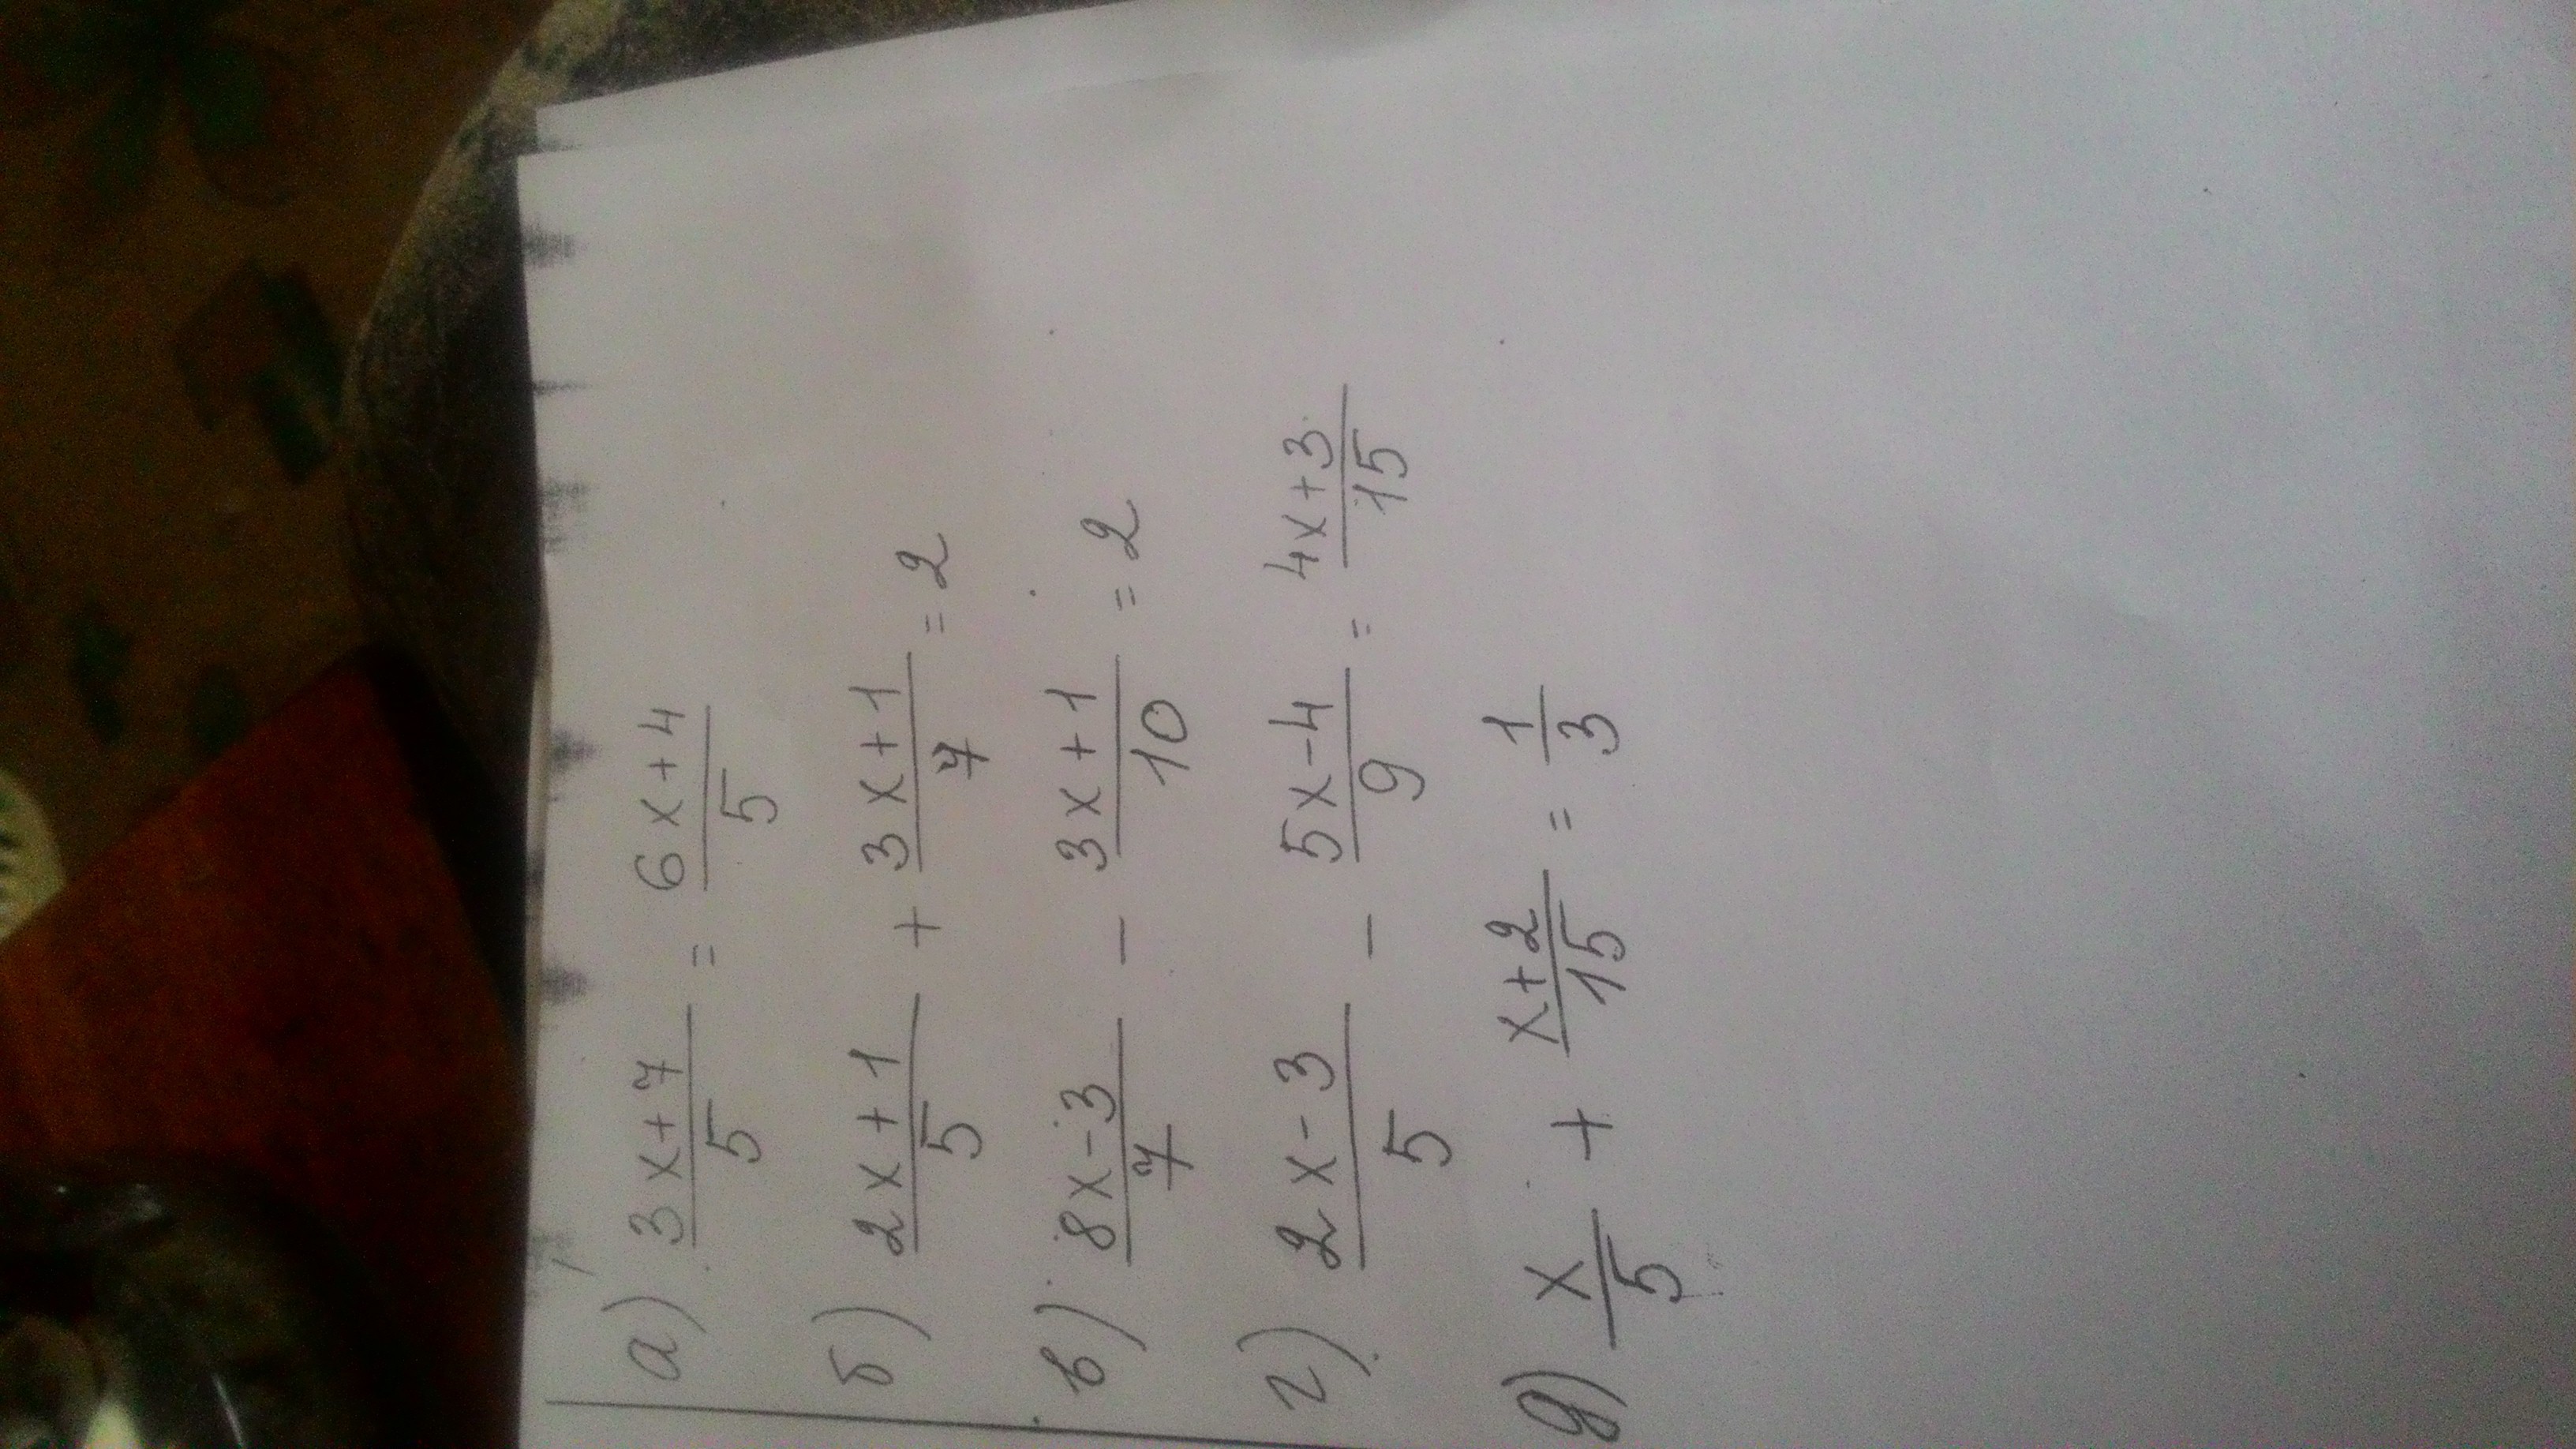 а) (3x+7)/5 = (6x+4)/5
б) (2x+1)/5 + (3x+1)/7 = 2
в) (8x-3)/7 - (3x+1)/10 = 2
г) (2x-3)/5 - (5x-4)/9 = (4x+3)/15
д) x/5 + (x+2)/15 = 1/3